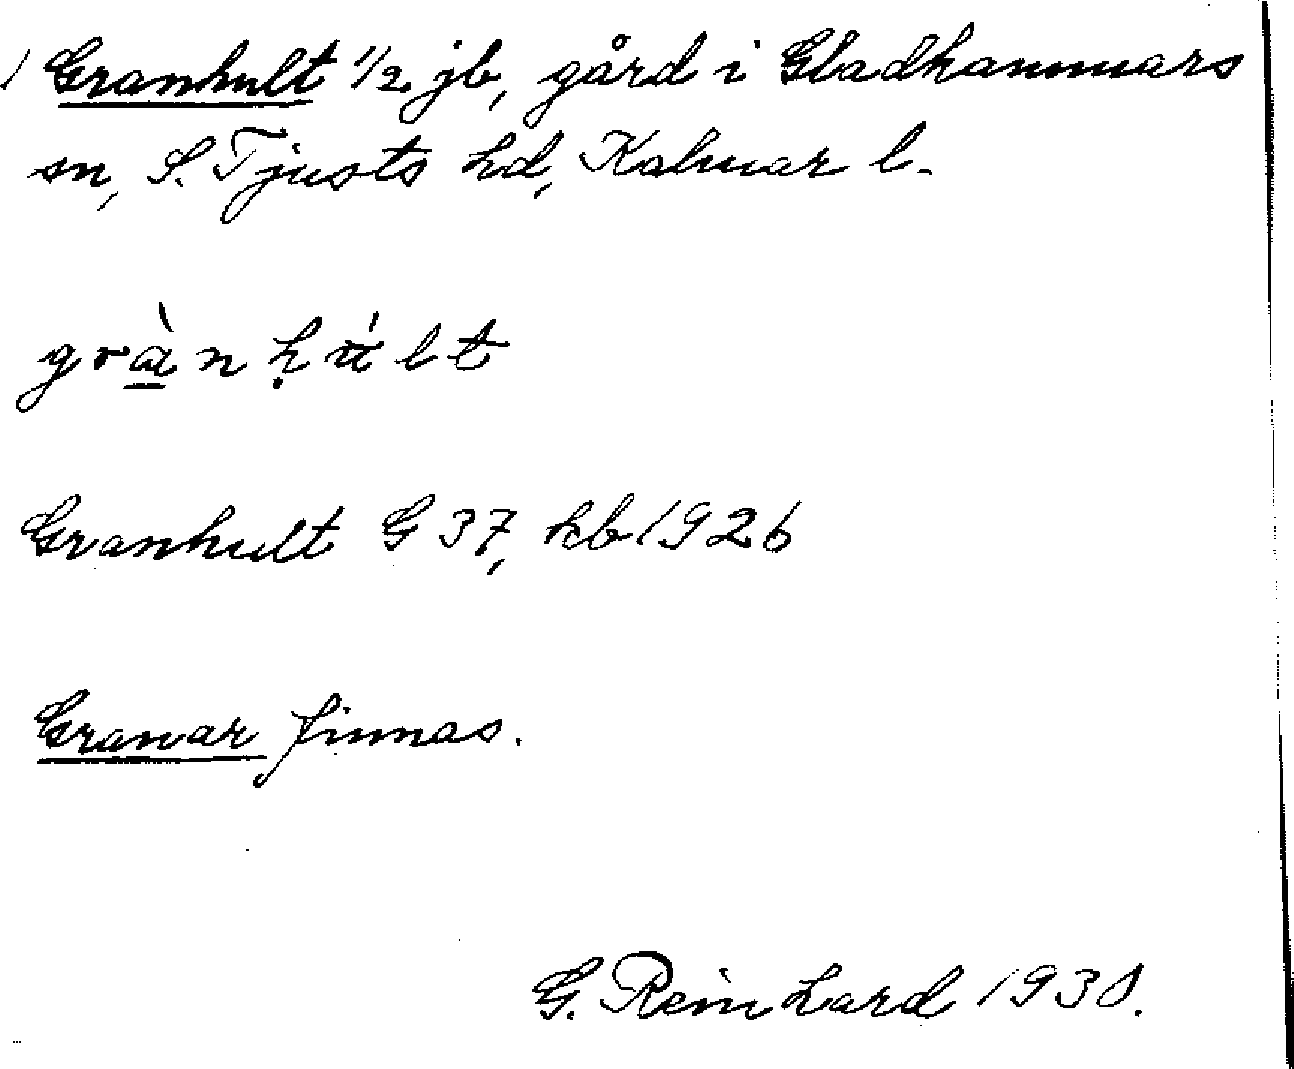 1 Granhult 1/2 jb, gård i Gladhammars
sn, S. Tjusts hd, Kalmar l.
gràn ḥúlt
Granhult G 37, kb 1926
Granar finnas.
G. Reinhard 1930.